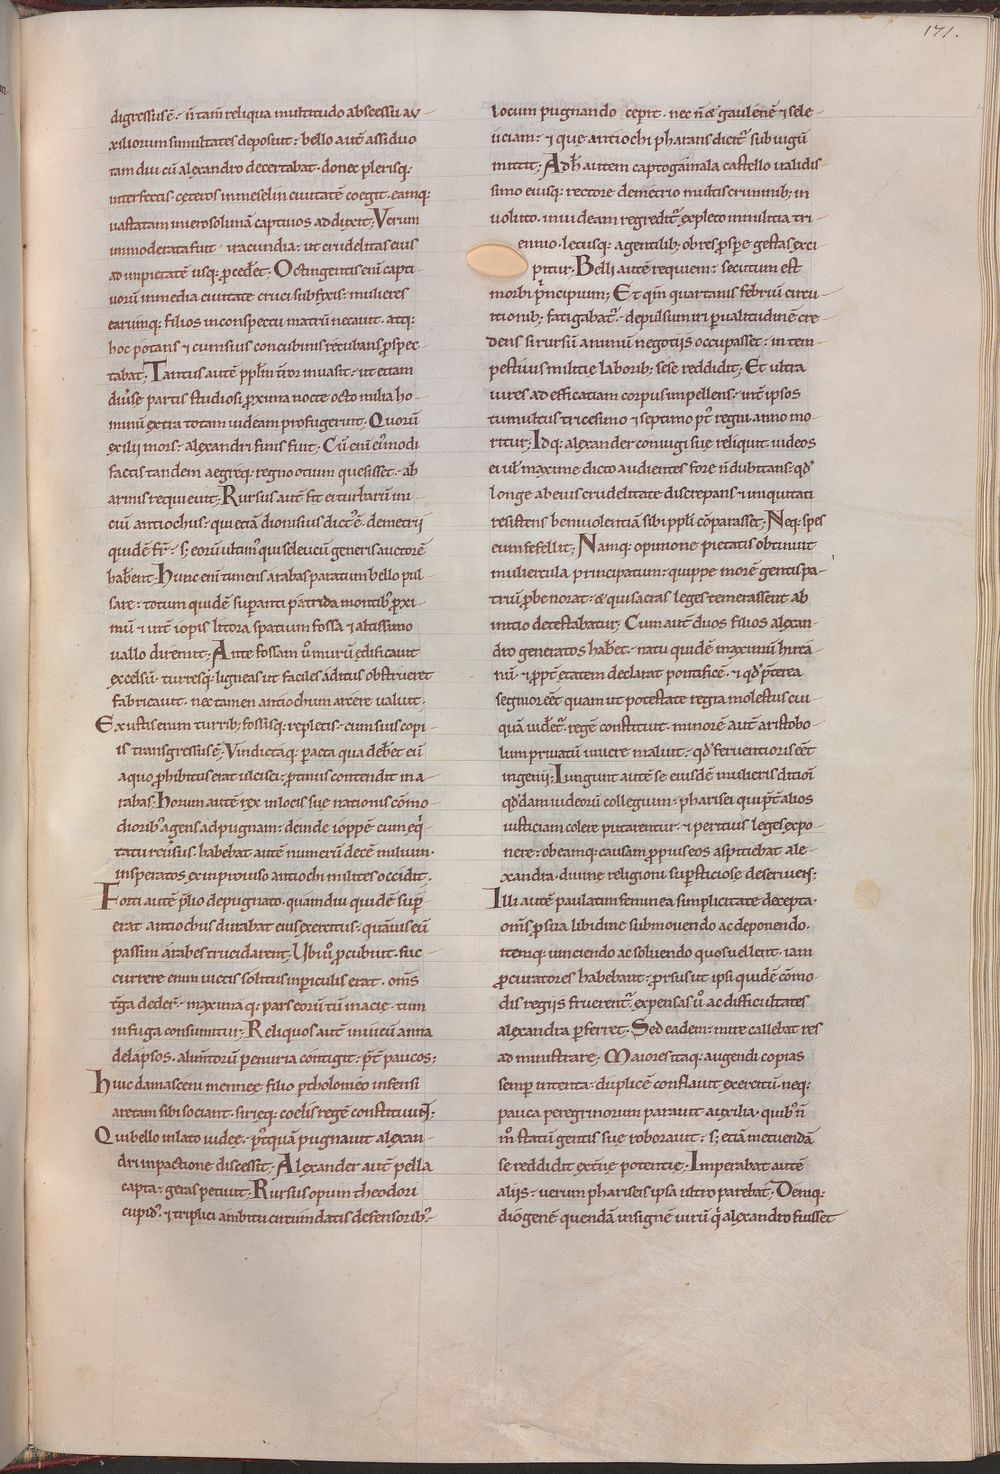 171.
digressus ē. n̄ tam̄ reliqua multitudo abscessu au
xiliorum simultates deposuit. bello aut̄ assiduo
tam diu cū alexandro decertabat. donec plerisq;
interfectis. ceteros in meselin ciuitatē coegit. eamq;
uastatam in ierosolimā captiuos adduxit; Verum
immoderata fuit iracundia. ut crudelitas eius
ad impietatem usq; ꝓced̄et; Octingentis enī capti
uorū in media ciuitate cruci subfixis. mulieres
earumq; filios in conspectu matrū necauit. atq;
hoc potans ⁊ cum suis concubinis recubans ꝓspec
tabat; Tantus autē ppl̄m t̄ror inuasit. ut etiam
diūse partis studiosi ꝓxima nocte octo milia ho
minū extra totam iudeam profugerint; Quorū
exilii mors. alexandri finis fuit; Cū enī eiᵐodi
factis tandem aegreq; regno otium quesisset. ab
armis requieuit; Rursus aut̄ fit ei turbarū ini
ciū antiochus. qui etiā dionisius dictꝰ ē. demetrii
quidē fr̄. s; eorū ultimꝰ qui seleucū generis auctorē
hab̄ent; Hunc enī timens arabas paratum bello pul
sare. totum quidē sup anti patrida montibꝰ ꝓxi
mū ⁊ int̄ iopis littora spatium fossa ⁊ altissimo
uallo diremit; Ante fossam ū murū edificauit
excelsū. turresq; ligneas ut faciles aditus obstrueret
fabricauit. nec tamen antiochum arcere ualuit;
Exustis enim turrib; fossisq; repletis. cum suis copi
is transgressus ē; Vindictaq; parta qua deb̄et eū
a quo ꝓhibitus erat ulcisci. ꝓtinus contendit in a
rabas; Horum autē rex in locis sue nationis cōmo
dioribꝰ agens ad pugnam. deinde ioppē cum eq̄
tatu reūsus. habebat autē numerū decē milium.
insperatos ex inprouiso antiochi milites occidit.
Forti autē p̄lio depugnato. quamdiu quidē sup
erat antiochus durabat eius exercitus. quāuis eū
passim arabes trucidarent; Ubi ū ꝓcubuit. suc
currere enim uictis solitus in piculis erat. om̄s
t̄ga deder̄. maxima q; pars eorū tū in acie. tum
in fuga consumitur; Reliquos aut̄ in uicū anna
delapsos. alim̄torū penuria contigit. p̄t paucos;
Huic damasceni mennee filio ptholomeo infensi
aretam sibi sociant. sirieq; coelis regē constituunt;
Qui bello inlato iudee. pꝰtquā pugnauit alexan
dri in pactione discessit; Alexander aut̄ pella
capta. geras petiuit; Rursus opum theodori
cupidꝰ. ⁊ triplici ambitu circumdatis defensoribꝰ
locum pugnando cepit. nec n̄ & gaulenē ⁊ sele
uciam. ⁊ que antiochi pharans dicit̄ sub iugū
mittit; Adh̄ autem capto gamala castello ualidis
simo eiusq; rectore demetrio multis criminib; in
uoluto. in iudeam regredit̄ expleto in militia tri
ennio. letusq; a gentilib; ob res ꝓspe gestas exci
pitur; Belli autē requiem. secutum est
morbi p̄ncipium; Et qm̄ quartanis febriū circu
itionib; fatigabat̄. depulsum iri p ualitudinē cre
dens si rursū animū negotiis occupasset. in tem
pestiuis militie laborib; sese reddidit; Et ultra
uires ad efficatiam corpus impellens. int̄ ipsos
tumultus tricesimo ⁊ septimo pꝰt regni anno mo
ritur; Idq; alexander coniugi sue reliquit. iudeos
ei ul̄ maxime dicto audientes fore n̄ dubitans. qd̄
longe ab eius crudelitate discrepans ⁊ iniquitati
resistens beniuolentiā sibi ppl̄i cōparasset; Neq; spes
eum fefellit; Namq; opinione pietatis obtinuit
muliercula principatum. quippe morē gentis pa
triū ꝓbe norat. & qui sacras leges temerassent ab
initio detestabatur; Cum aut̄ duos filios alexan
dro generatos hab̄et. natu quidē maximū hircā
nū. ⁊ ꝓpt̄ etatem declarat pontificē. ⁊ qd̄ p̄terea
segnior eēt quam ut potestate regia molestus cui
quā uid̄et. regē constituit. minorē aut̄ aristobo
lum priuatū uiuere maluit. qd̄ feruentioris eēt
ingenii; Iungunt autē se eiusdē mulieris ditioī
qd̄dam iudeorū collegium. pharisei qui p̄t alios
iusticiam colere putarentur. ⁊ peritius leges expo
nere. ob eamq; causam ꝓpius eos aspitiebat ale
xandra. diuine religioni sup̄sticiose deseruiens;
Illi autē paulatim feminea simplicitate decepta.
om̄s ꝓ sua libidine submouendo ac deponendo.
itemq; uinciendo ac soluendo quos uellent. iam
ꝓcuratores habebant. ꝓrsus ut ipsi quidē cōmo
dis regiis fruerent̄. expensas ū ac difficultates
alexandra pferret; Sed eadem. mire callebat res
administrare; Maiores itaq; augendi copias
semp intenta. duplicē conflauit exercitū. neq;
pauca peregrinorum parauit auxilia. quibꝰ n̄
m̊ statū gentis sue roborauit. s; etiā metuendā
se reddidit ext̄ne potentie; Imperabat autē
aliis. uerum phariseis ipsa ultro parebat; Deniq;
diogenē quendā insignē uirū q̄ alexandro fuisset